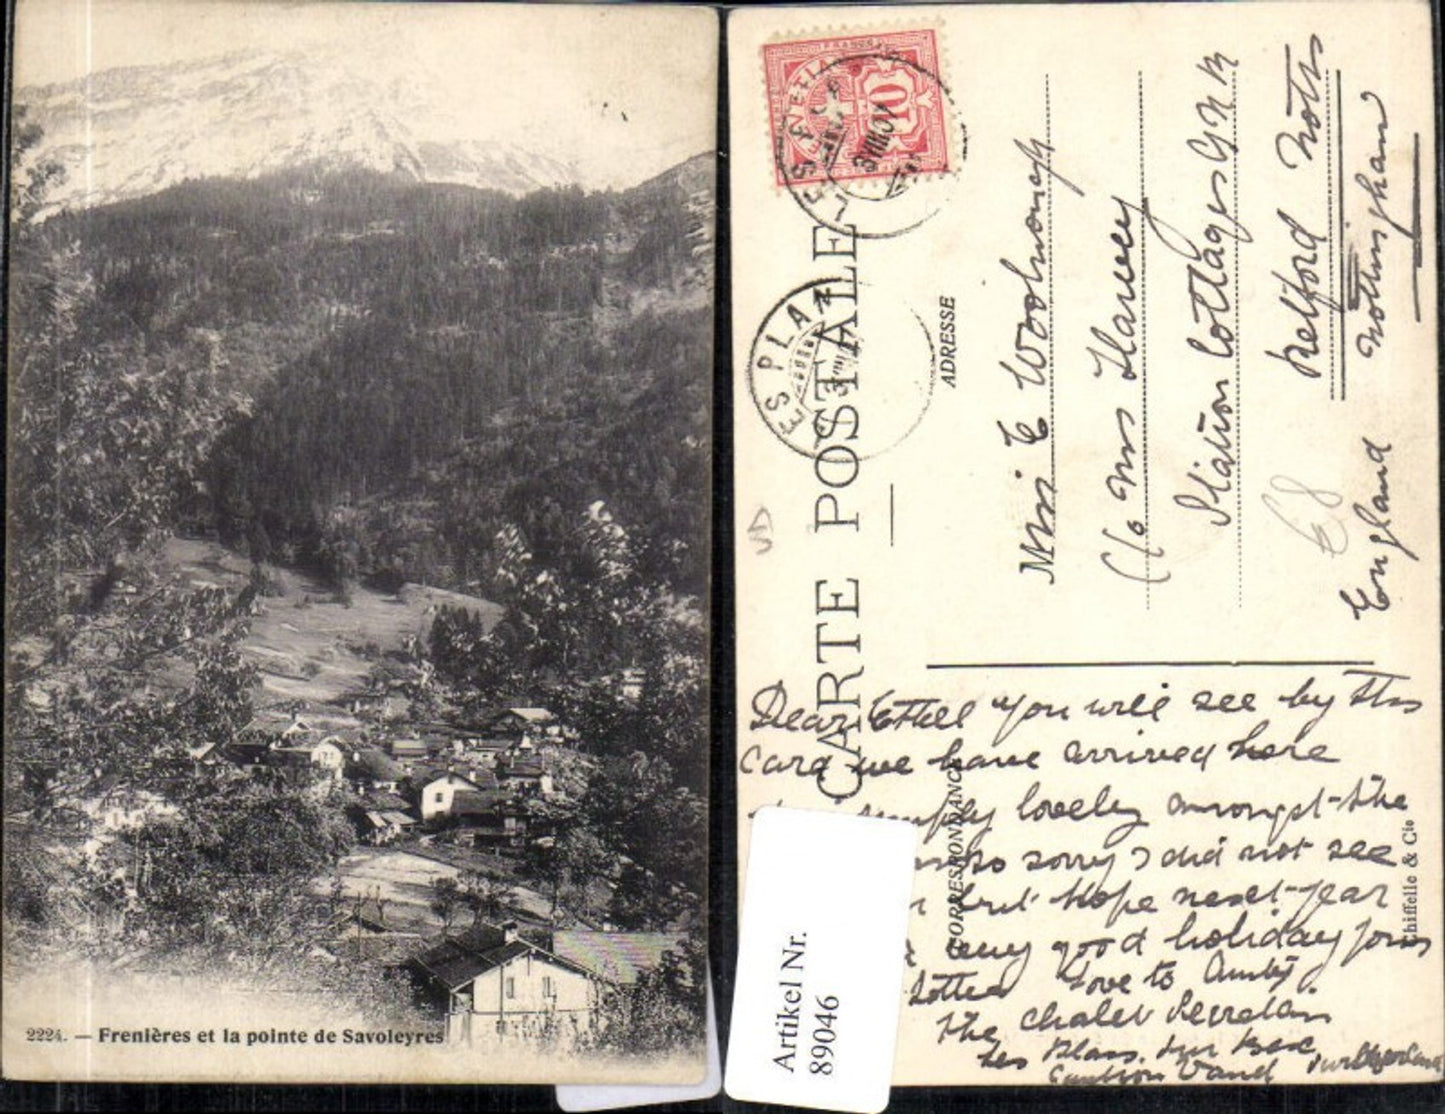 2224. — Frenières et la pointe de Savoleyres
HELVETIA
FRANCO
10
LES PLANS
3 VIII 07
LES PLANS
CARTE POSTALE
ADRESSE
CORRESPONDANCE
Miss E Woolnough
C/o Mrs Harvey
Station Cottages G N R
Retford Notts
Nottingham
England
68
Dear Ethel you will see by this
card we have arrived here
simply lovely amongst the
so sorry I did not see
but hope next year
a very good holiday yours
Lottie Love to Aunty
The Chalet
Les Plans. Sur Bex
Canton Vaud Switzerland
& Cie
Artikel Nr.
89046